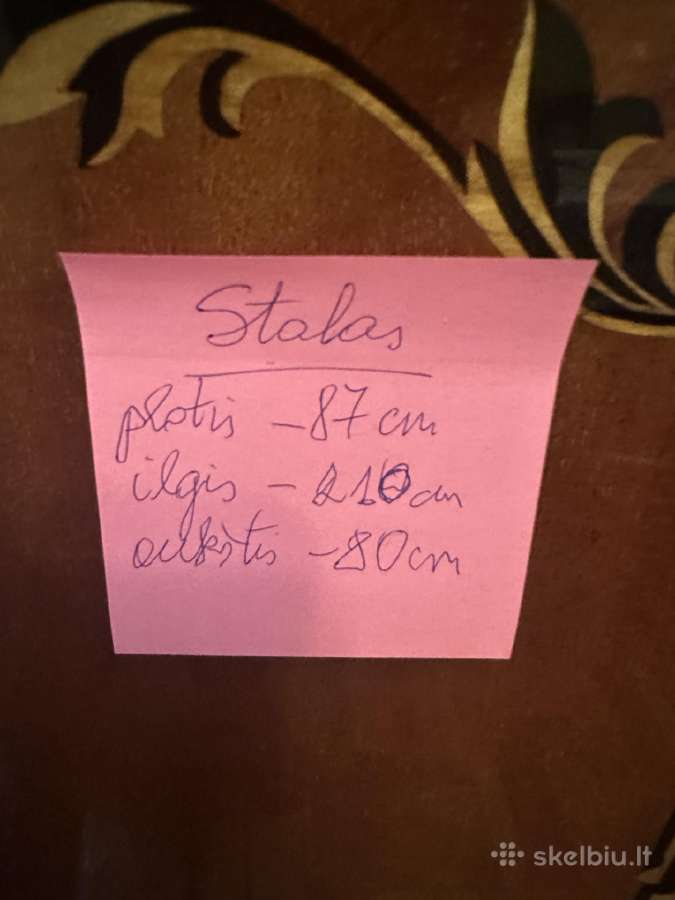 Stalas
plotis - 87 cm
ilgis - 210 cm
aukštis - 80 cm
skelbiu.lt